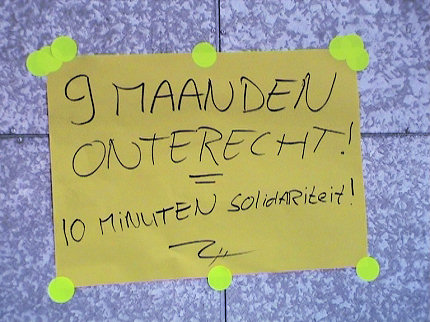 9 MAANDEN
ONTERECHT!
=
10 MINUTEN SOlidARiteit!